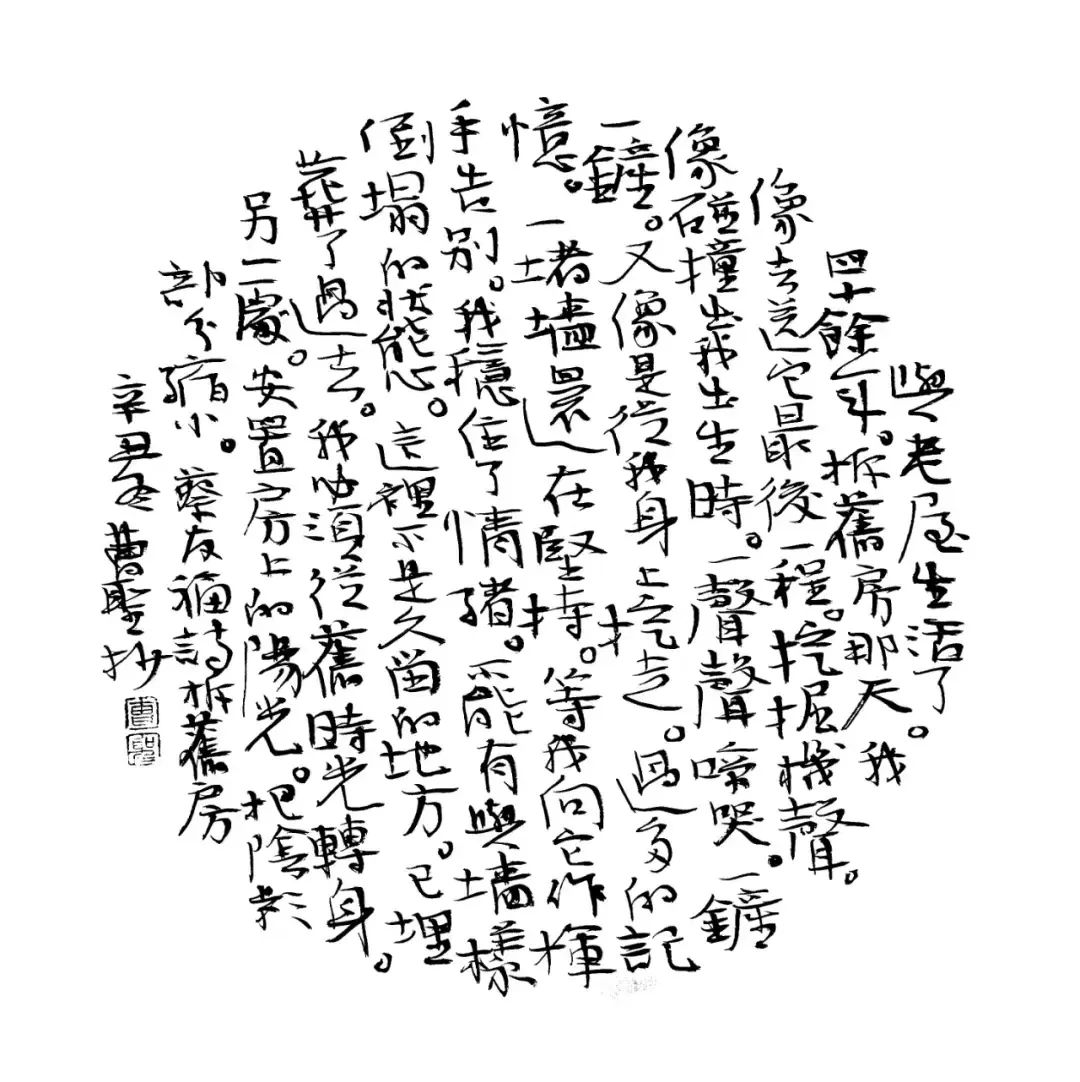 與老屋生活了。
四十餘年。拆舊房那天。我
像去送它最後一程。挖掘機聲。
像碰撞出我出生時。一聲聲啼哭。一鏟
一鏟。又像是從我身上挖走。過多的記
憶。一堵墻還在堅持。等我向它作揮
手告别。我穩住了情緒。不能有與墻樣
倒塌的狀態。這裡不是久留的地方。已埋
葬了過去。我必須從舊時光轉身。
另一處。安置房上的陽光。把陰影
部分縮小。蔡友福詩拆舊房
辛丑冬曹聖抄
曹聖